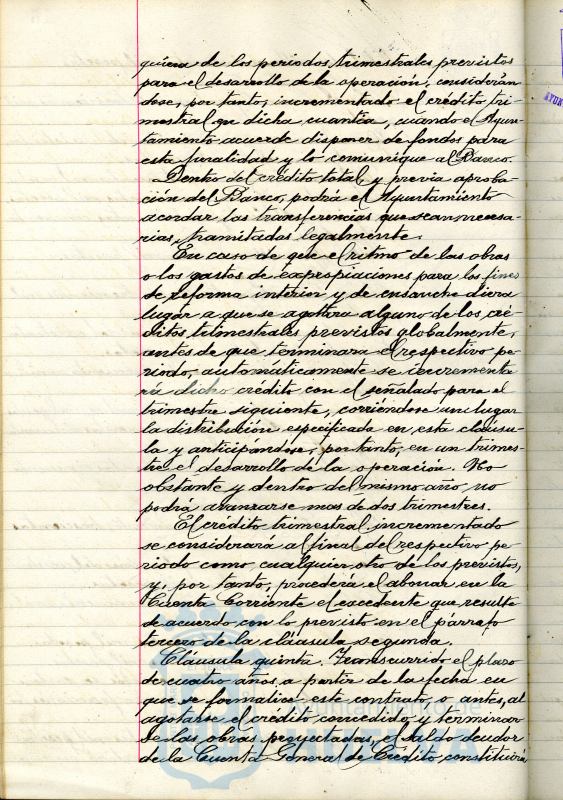 quiera de los periodos trimestrales previstos
para el desarrollo de la operación, considerán
dose, por tanto, incrementado el crédito tri-
mestral en dicha cuantía, cuando el Ayun-
tamiento acuerde disponer de fondos para
esta finalidad y lo comunique al Banco.
Dentro del crédito total, y previa aproba
ción del Banco, podrá el Ayuntamiento
acordar las transferencias que sean necesa-
rias, tramitadas legalmente.
En caso de que el ritmo de las obras
o los gastos de expropiaciones para los fines
de reforma interior y de ensanche diera
lugar a que se agotara alguno de los cré-
ditos trimestrales previstos globalmente,
antes de que terminara el respectivo pe-
riodo, automáticamente se incrementa
rá dicho crédito con el señalado para el
trimestre siguiente, corriéndose un lugar
la distribución especificada en esta cláusu-
la y anticipándose, por tanto, en un trimes-
tre el desarrollo de la operación. No
obstante y dentro del mismo año, no
podrá avanzarse mas de dos trimestres.
El crédito trimestral incrementado
se considerará al final del respectivo pe-
riodo como cualquier otro de los previstos,
y, por tanto, procederá el abonar en la
Cuenta Corriente el excedente que resulte
de acuerdo con lo previsto en el párrafo
tercero de la cláusula segunda.
Cláusula quinta. Transcurrido el plazo
de cuatro años a partir de la fecha en
que se formalice este contrato, o antes, al
agotarse el crédito concedido y terminar
se las obras proyectadas, el saldo deudor
de la Cuenta General de Crédito constituirá
Ayuntamiento de
HUELVA